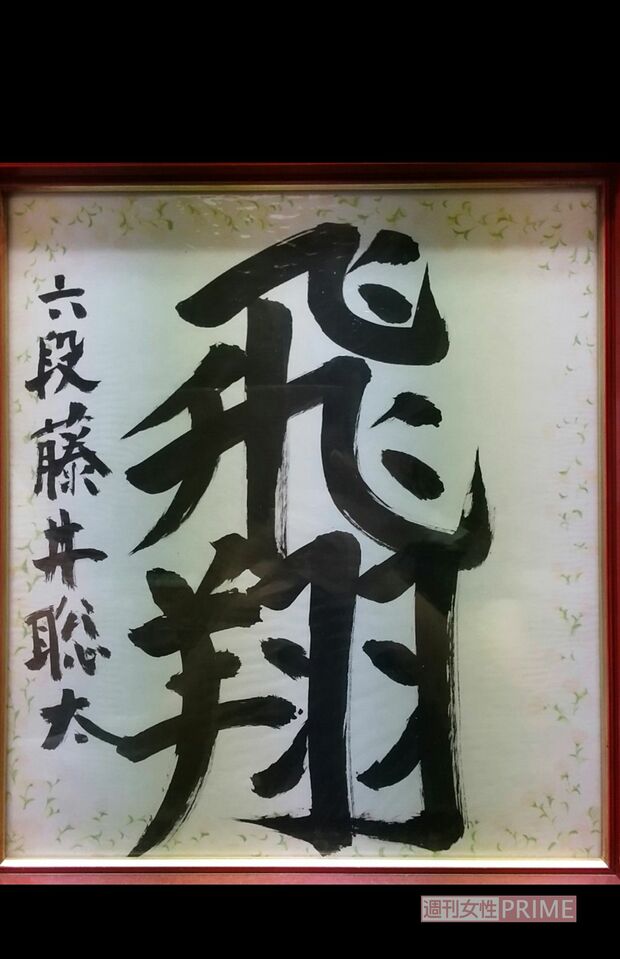 飛翔
六段藤井聡太
週刊女性PRIME